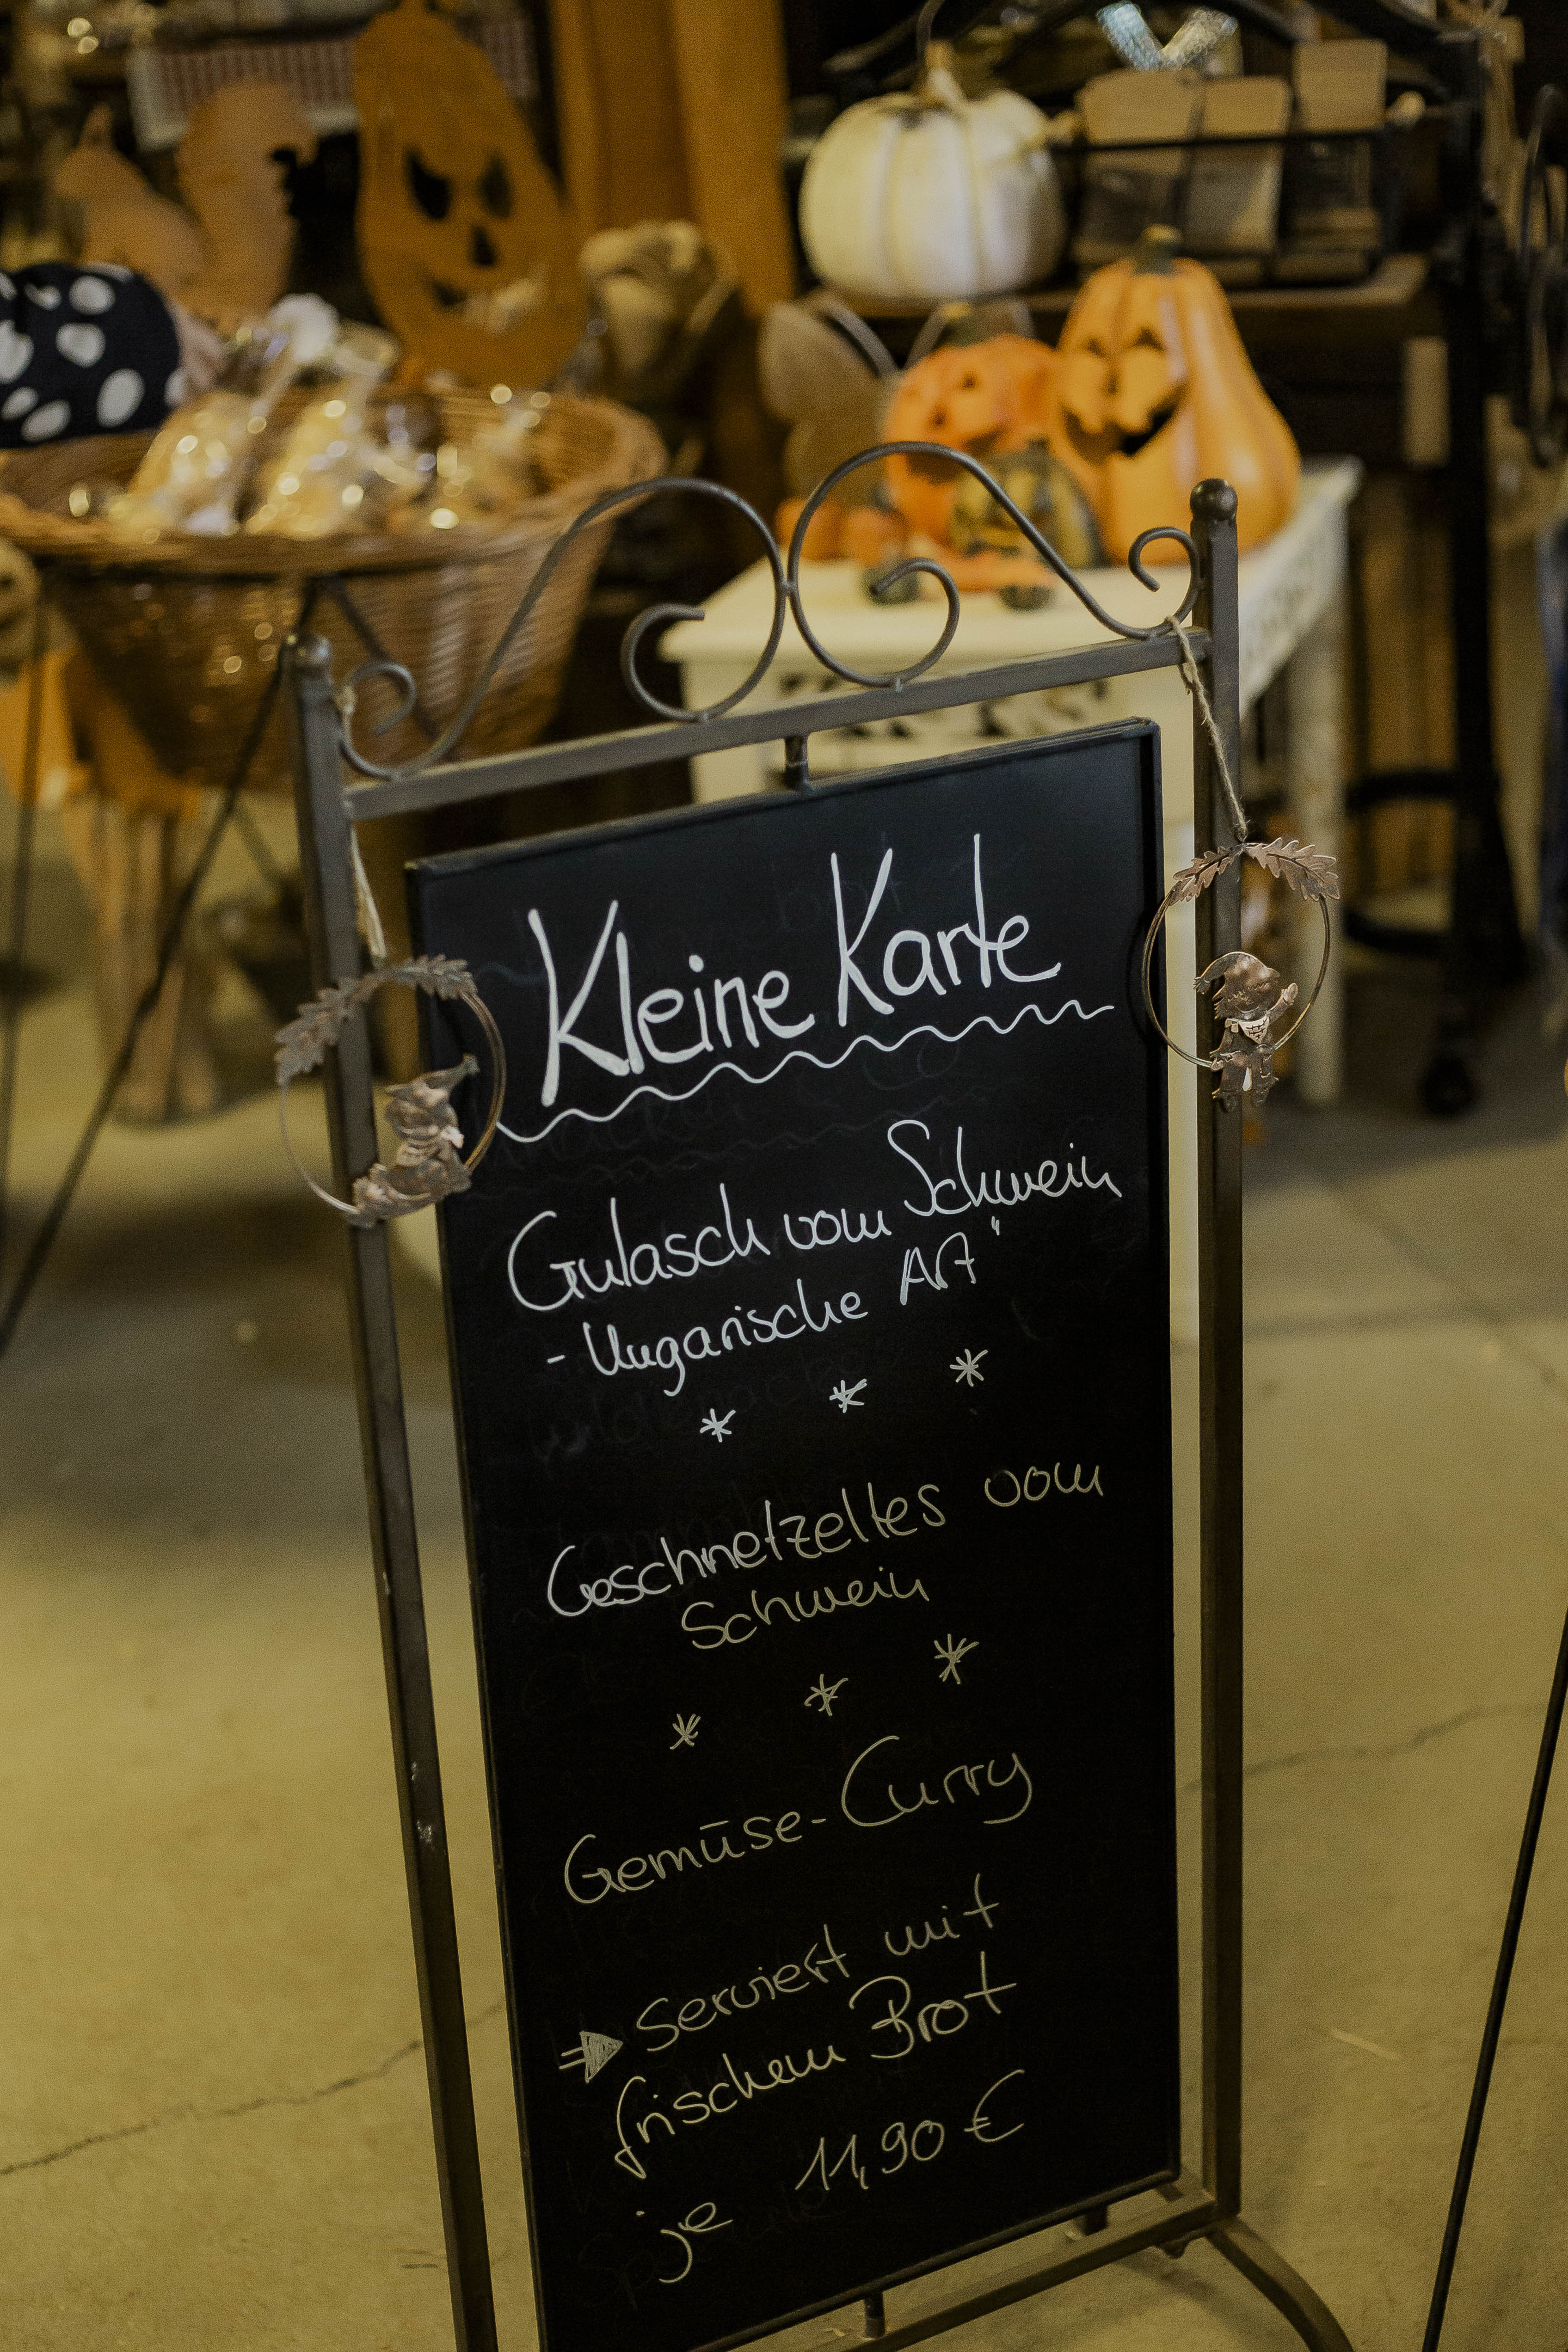 Kleine Karte
Gulasch vom Schwein
- Ungarische Art"
* * *
Geschnetzeltes vom
Schwein
* * *
Gemüse-Curry
⇒ serviert mit
frischem Brot
je 11,90 €